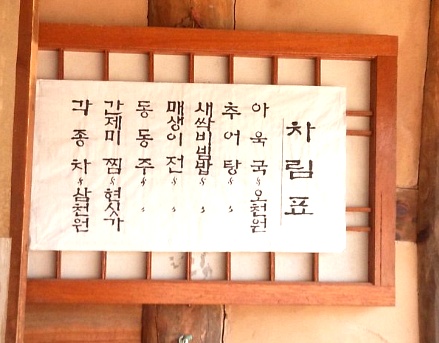 차림표
아욱국 오천원
추어탕 〃
새싹비빔밥 〃
매생이전 〃
동동주 〃
간제미찜 현싯가
각종차 삼천원